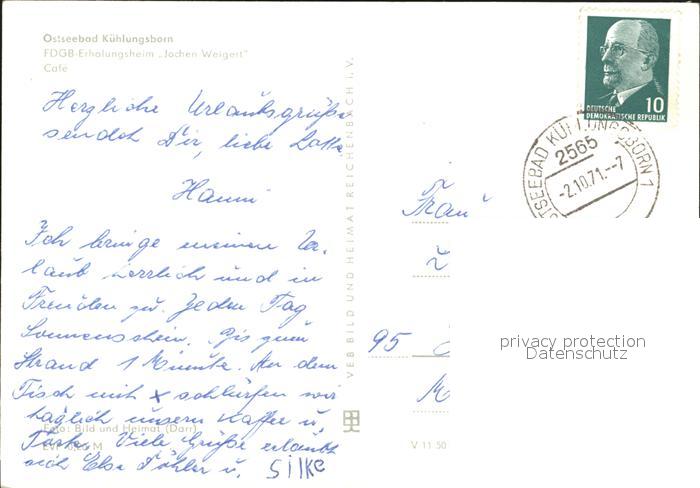 Ostseebad Kühlungsborn
FDGB-Erholungsheim „Jochen Weigert"
Café
Herzliche Urlaubsgrüße
sendet Dir, liebe Lotte
Hanni
Ich bringe meinen Ur-
laub herrlich und in
Freuden zu. Jeden Tag
Sonnenschein. Bis zum
Strand 1 Minute. An dem
Tisch mit x schlürfen wir
täglich unsern Kaffee u.
Foto: Bild und Heimat (Darr)
Viele Grüße erlaubt
sich Else u. Silke
VEB BILD UND HEIMAT REICHENBACH I. V.
V 11 50
DEUTSCHE
DEMOKRATISCHE REPUBLIK
10
OSTSEEBAD KÜHLUNGSBORN 1
2565
-2.10.71.--7
Frau
95
M
privacy protection
Datenschutz